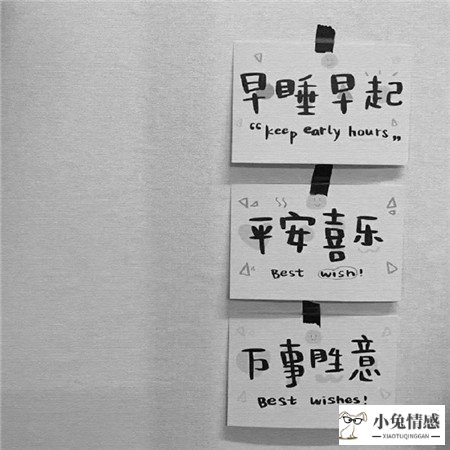 早睡早起
“keep early hours”
平安喜乐
Best wish!
万事胜意
Best wishes!
小兔情感
XIAOTUQINGGAN